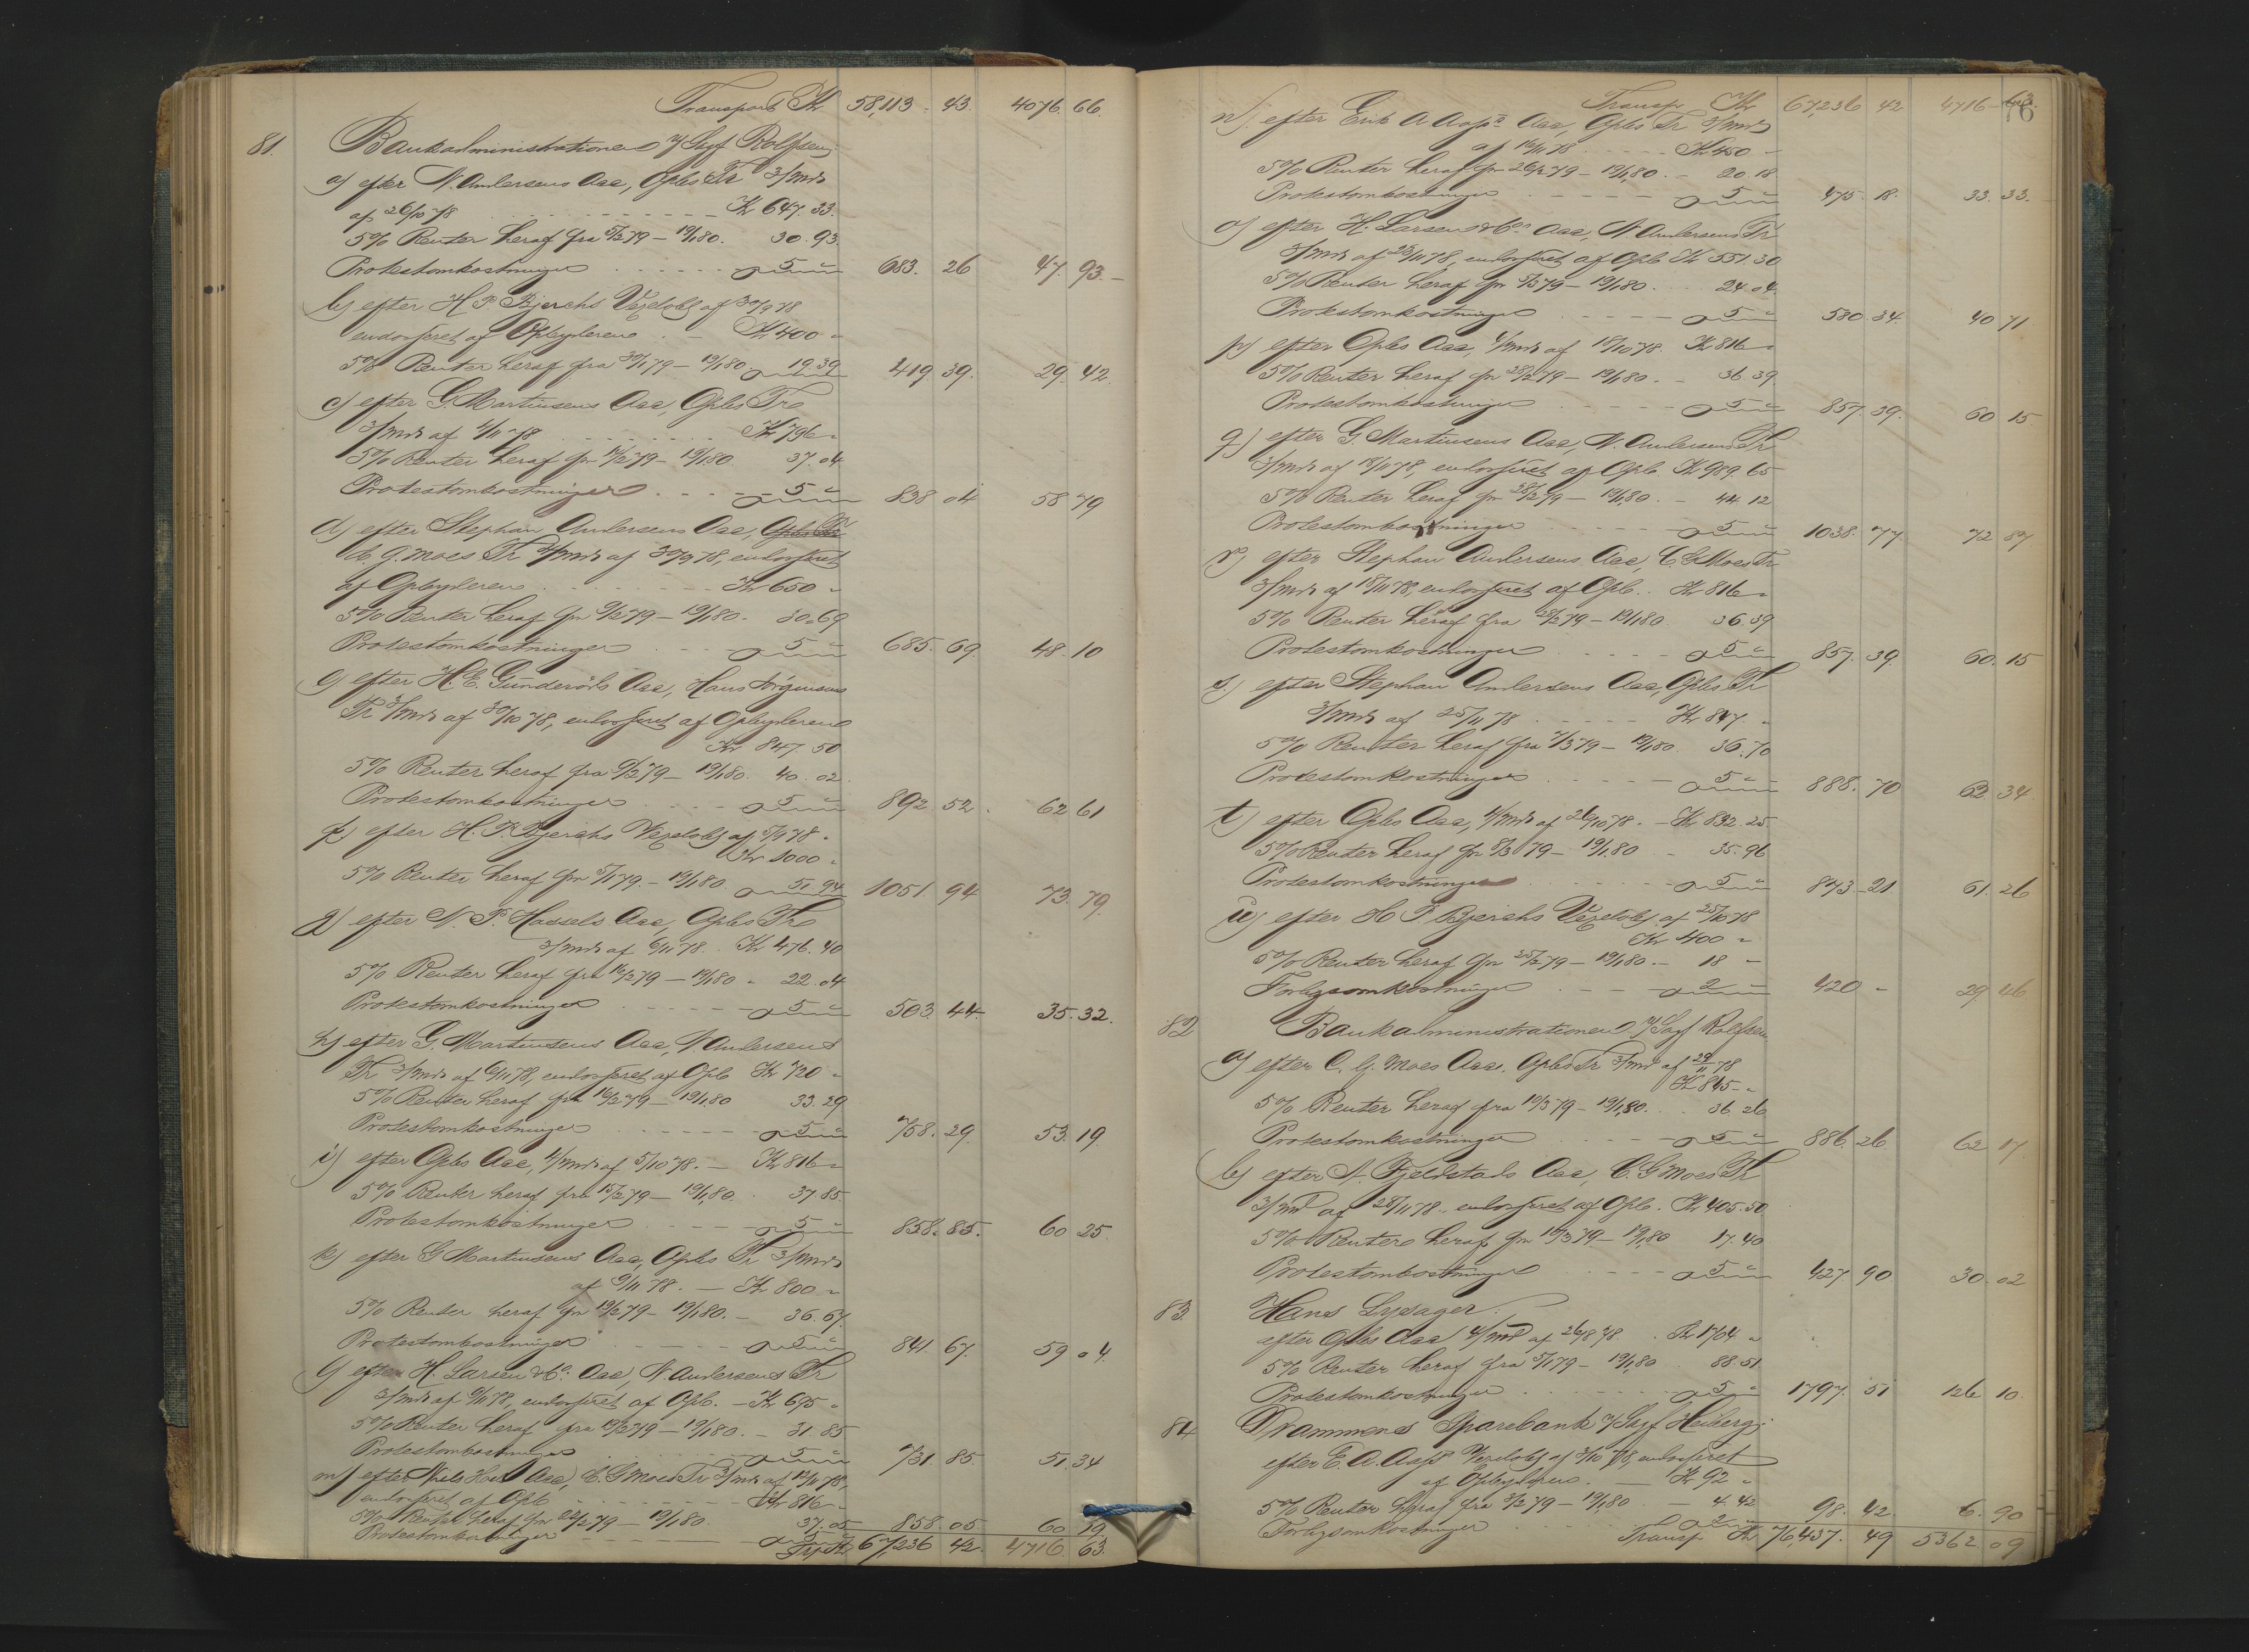 Transport Kr 58,113. 43. 4076. 66.
81. Bankadministrationen v/ Sagf Rolfsen
a) efter N. Andersens Acc, Opbs Tr 3/mds
af 26/10 78 Kr 647. 33.
5% Renter heraf fra 5/2 79 – 19/1 80. 30. 93.
Protestomkostninger 5 " 683. 26 47. 93.
b) efter H. P. Bjerchs Vexelobl af 30/9 78
endosseret af Opbyderen Kr 400 "
5% Renter heraf fra 30/1 79 – 19/1 80 19.39 419 39. 29. 42.
c) efter G. Martinsens Acc, Opbs Tr
3/mds af 4/11 78 Kr 796 "
5% Renter heraf fra 14/2 79 – 19/1 80 37. 04
Protestomkostninger 5 " 838 04 58 79
d) efter Stephan Andersens Acc, Opbs Tr
C. G. Moes Tr 4/mds af 30/9 78, endosseret
af Opbyderen Kr 650 "
5% Renter heraf fra 9/2 79 – 19/1 80. 30. 69
Protestomkostninger 5 " 685. 69. 48. 10
e) efter H. E. Gunderöds Acc, Hans Jörgensens
Tr 3/mds af 30/10 78, endosseret af Opbyderen
Kr 847 50
5% Renter heraf fra 9/2 79 – 19/1 80. 40. 02.
Protestomkostninger 5 " 892 52. 62 61
f) efter H. P. Bjerchs Vexelobl af 5/1 78.
Kr 1000 "
5% Renter heraf fra 5/1 79. – 19/1 80. 51. 94 1051. 94 73. 79.
g) efter N. P. Hassels Acc, Opbs Tr
3/mds af 6/11 78. Kr 476. 40
5% Renter heraf fra 16/2 79 – 19/1 80 " 22. 04
Protestomkostninger 5 " 503. 44. 35. 32.
h) efter G. Martinsens Acc, N. Andersens
Tr 3/mds af 6/11 78, endosseret af Opb Kr 720 "
5% Renter heraf fra 16/2 79 – 19/1 80 33. 29
Protestomkostninger 5 " 758. 29. 53. 19
i) efter Opbs Acc, 4/mds af 5/10 78. – Kr 816 "
5% Renter heraf fra 15/2 79 – 19/1 80. 37. 85
Protestomkostninger 5 " 858. 85. 60 25.
k) efter G Martinsens Acc, Opbs Tr 3/mds
af 9/11 78. – Kr 800 "
5% Renter heraf fra 19/2 79 – 19/1 80. – 36. 67.
Protestomkostninger 5 " 841. 67. 59 04.
l) efter H. Larsen & Co. Acc, N. Andersens Tr
3/mds af 9/11 78, endosseret af Opb. – Kr 695 "
5% Renter heraf fra 19/2 79 – 19/1 80. – 31. 85
Protestomkostninger 5 " 731 85. 51. 34
m) efter Niels Acc, C. G Moes Tr 3/mds af 12/11 78,
endosseret af Opb Kr 816 "
5% Renter heraf fra 22/2 79 – 19/1 80. 37. 05 858. 05 60 19.
Protestomkostninger 5 "
Trsp Kr 67,236 42. 4716. 63.
Transp Kr 67,236 42 4716 – 63.
76
n) efter Erik A Aass Acc, Opbs Tr 3/mds
af 16/11 78 Kr 450 –
5% Renter heraf fra 26/2 79 – 19/1 80. – 20 18
Protestomkostninger 5 " 475. 18. 33. 33.
o) efter H. Larsen & Co Acc, N. Andersens Tr
3/mds af 25/11 78, endosseret af Opb Kr 551 30
5% Renter heraf fra 5/3 79 – 19/1 80. 24. 04.
Protestomkostninger 5 " 580. 34. 40 71
p) efter Opbs Acc, 4/mds af 18/10 78. Kr 816 "
5% Renter heraf fra 28/2 79 – 19/1 80. – 36 39
Protestomkostninger 5 " 857. 39. 60 15.
q) efter G. Martinsens Acc, N. Andersens Tr
3/mds af 18/11 78, endosseret af Opb. Kr 989. 65
5% Renter heraf fra 28/2 79 – 19/1 80. – 44 12
Protestomkostninger 5 " 1038. 77. 72 87
r) efter Stephan Andersens Acc, C. G. Moes Tr
3/mds af 18/11 78, endosseret af Opb. Kr 816 "
5% Renter heraf fra 28/2 79 – 19/1 80. 36. 39
Protestomkostninger 5 " 857. 39. 60. 15
s) efter Stephan Andersens Acc, Opbs Tr
3/mds af 25/11 78 Kr 847. "
5% Renter heraf fra 7/3 79 – 19/1 80. 36. 70
Protestomkostninger 5 " 888. 70 62 34
t) efter Opbs Acc, 4/mds af 26/10 78. – Kr 832. 25.
5% Renter heraf fra 8/3 79 – 19/1 80 – 35. 96
Protestomkostninger 5 " 873 – 21 61. 26
u) efter H P Bjerchs Vexelobl af 25/10 78
Kr 400 "
5% Renter heraf fra 25/2 79 – 19/1 80. – 18 –
Forligsomkostninger 2 " 420 " 29 46
82 Bankadministrationen v/ Sagf Rolfsen
a) efter C. G. Moes Acc, Opbs Tr 3/md af 29/11 78
Kr 845 – "
5% Renter heraf fra 10/3 79 – 19/1 80. 36 26
Protestomkostninger 5 " 886. 26. 62 17.
b) efter A. Fjeldstads Acc, C. G Moes Tr
3/md af 28/11 78. endosseret af Opb. Kr 405. 50
5% Renter heraf fra 10/3 79 – 19/1 80 17. 40
Protestomkostninger 5 " 427. 90 30. 02
83. Hans Lysager.
efter Opbs Acc 4/md af 26/8 78. Kr 1704 "
5% Renter heraf fra 5/1 79 – 19/1 80 88. 51
Protestomkostninger 5 " 1797. 51 126 10.
84 Drammens Sparebank v/ Sagf Heiberg
efter E. A. Aass Vexelobl af 3/10 78, endosseret
af Opbyderen. – Kr 92 "
5% Renter heraf fra 3/2 79 – 19/1 80 – 4. 42
Forligsomkostninger 2 " 98. 42. 6. 90
Transp Kr 76,437. 49 5362. 09